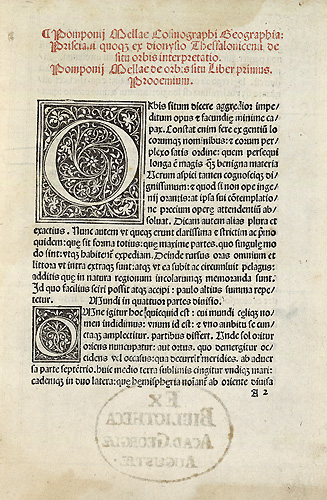 ¶ Pomponij Mellae Cosmographi Geographia:
Prisciani quoqꝫ ex dionysio Thessalonicensi de
situ orbis interpretatio.
Pomponij Mellae de orbis situ Liber primus.
Prooemium.
ORbis situm dicere aggredior impe/
ditum opus & facundię minime ca/
pax. Constat enim fere ex gentiū lo
corumqꝫ nominibus: & eorum per
plexo satis ordine: quem persequi
longa ē magis: q̄ꝫ benigna materia
Verum aspici tamen cognosciqꝫ di
gnissimum: & quod si non ope inge
nij orantis: at ipsa sui cōtemplatio/
ne precium operę attendentiū ab/
soluat. Dicam autem alias plura et
exactius. Nunc autem vt quęqꝫ erunt clarissima e strictim ac pr̄mo
quidem: quę sit forma totius: quę maxime partes. quo singulę mo
do sint: vtqꝫ habitent̄ expediam. Deinde rursus oras omnium et
littora vt intra extraqꝫ sunt: atqꝫ vt ea subit ac circumluit pelagus:
additis que in natura regionum incolarumqꝫ memoranda sunt.
Id quo facilius sciri possit atqꝫ accipi: paulo altius summa repe/
tetur. Mundi in quattuor partes diuisio.
OMne igitur hoc quicquid est: cui mundi cęliqꝫ no/
men indidimus: vnum id est: & vno ambitu se cun/
ctaqꝫ amplectitur. partibus differt. Vnde sol oritur
oriens nuncupatur: aut ortus. quo demergitur oc/
cidens: vel occasus: qua decurrit meridies. ab aduer
sa parte septētrio. huic medio terra sublimis cingitur vndiqꝫ mari:
eademqꝫ in duo latera: quę hemispheria noiant̄ ab oriente diuisa
A 2
EX
BIBLIOTHECA
ACAD. GEORGIÆ
AUGUSTÆ